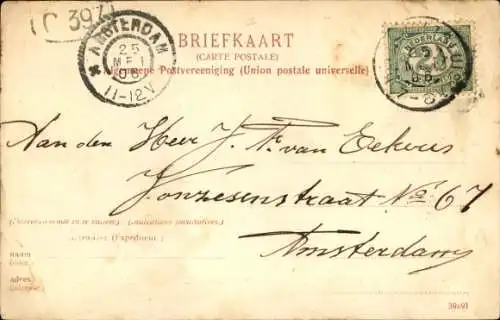 C 397
AMSTERDAM
25
MEI
06
11-12V
BRIEFKAART
(CARTE POSTALE)
Algemeene Postvereeniging (Union postale universelle)
NEDERLAND
2½
Aan den Heer J. Fr. van Eekeris
Jonzesenstraat No 67
Amsterdam
(Expéditeur)
naam
adres
39491